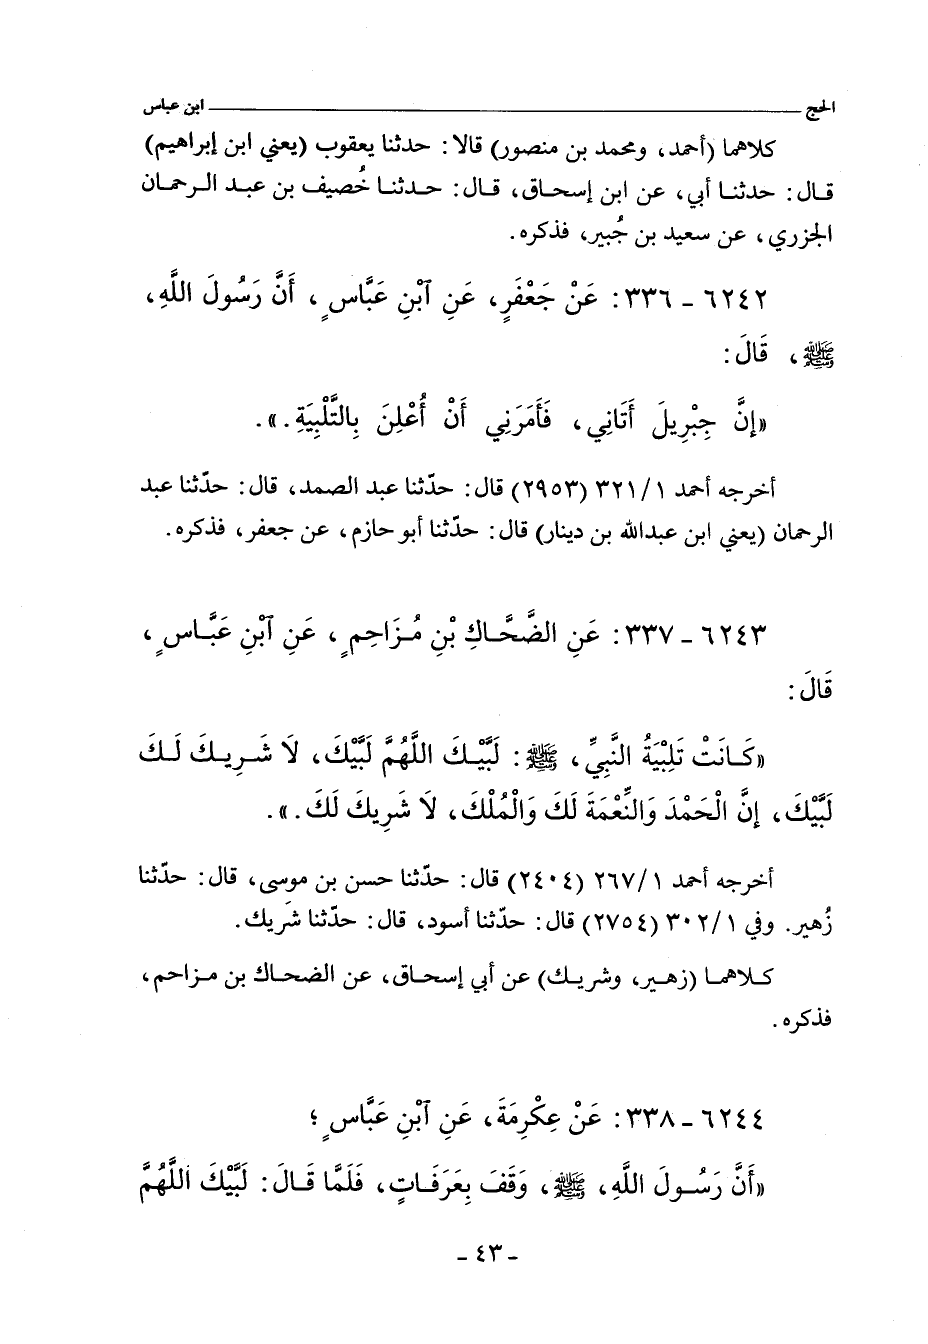 الحج ابن عباس
كلاهما (أحمد، ومحمد بن منصور) قالا: حدثنا يعقوب (يعني ابن إبراهيم)
قال: حدثنا أبي، عن ابن إسحاق، قال: حدثنا خُصيف بن عبد الرحمان
الجزري، عن سعيد بن جُبير، فذكره.
٦٢٤٢ - ٣٣٦: عَنْ جَعْفَرٍ، عَنِ آبْنِ عَبَّاسٍ، أَنَّ رَسُولَ اللَّهِ،
ﷺ، قَالَ:
«إِنَّ جِبْرِيلَ أَتَانِي، فَأَمَرَنِي أَنْ أُعْلِنَ بِالتَّلْبِيَةِ.».
أخرجه أحمد ٣٢١/١ (٢٩٥٣) قال: حدّثنا عبد الصمد، قال: حدّثنا عبد
الرحمان (يعني ابن عبدالله بن دينار) قال: حدّثنا أبو حازم، عن جعفر، فذكره.
٦٢٤٣ - ٣٣٧: عَنِ الضَّحَّاكِ بْنِ مُزَاحِمٍ، عَنِ آبْنِ عَبَّاسٍ،
قَالَ:
«كَانَتْ تَلْبِيَةُ النَّبِيِّ، ﷺ: لَبَّيْكَ اللَّهُمَّ لَبَّيْكَ، لَا شَرِيكَ لَكَ
لَبَّيْكَ، إِنَّ الْحَمْدَ وَالنِّعْمَةَ لَكَ وَالْمُلْكَ، لَا شَرِيكَ لَكَ.».
أخرجه أحمد ٢٦٧/١ (٢٤٠٤) قال: حدّثنا حسن بن موسى، قال: حدّثنا
زُهير. وفي ٣٠٢/١ (٢٧٥٤) قال: حدّثنا أسود، قال: حدّثنا شَريك.
كلاهما (زهير، وشريك) عن أبي إسحاق، عن الضحاك بن مزاحم،
فذكره.
٦٢٤٤ - ٣٣٨: عَنْ عِكْرِمَةَ، عَنِ آبْنِ عَبَّاسٍ؛
«أَنَّ رَسُولَ اللَّهِ، ﷺ، وَقَفَ بِعَرَفَاتٍ، فَلَمَّا قَالَ: لَبَّيْكَ اللَّهُمَّ
- ٤٣ -